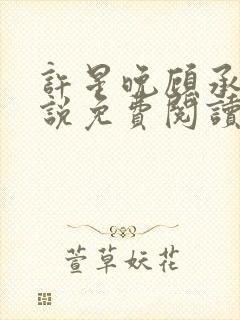 許星晚顧承
說免費閱讀
萱草妖花